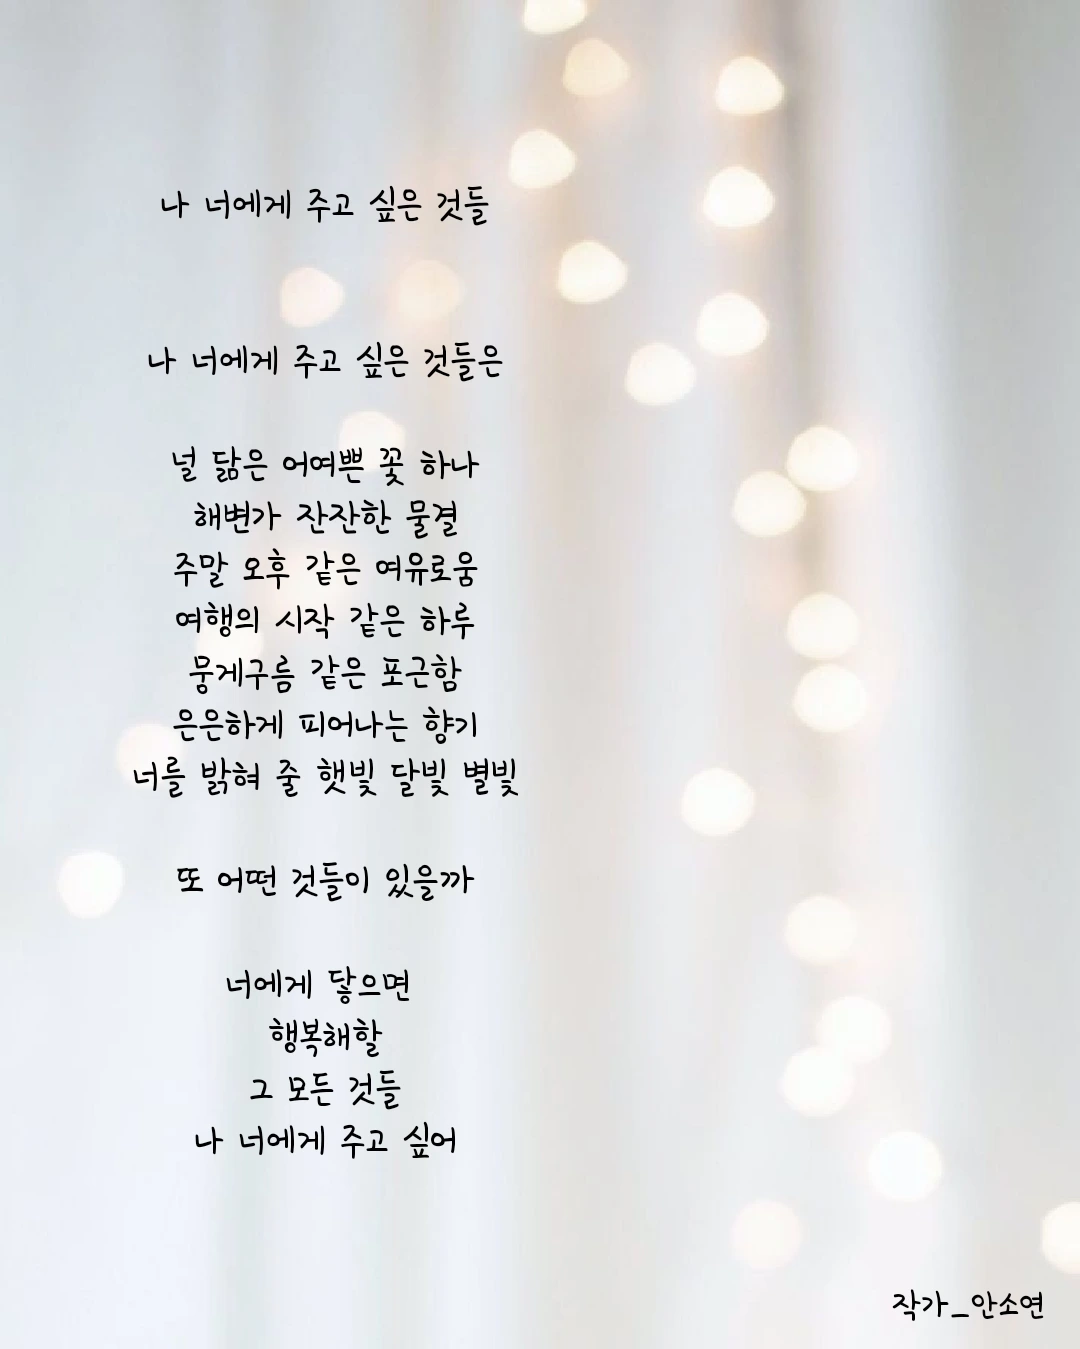 나 너에게 주고 싶은 것들
나 너에게 주고 싶은 것들은
널 닮은 어여쁜 꽃 하나
해변가 잔잔한 물결
주말 오후 같은 여유로움
여행의 시작 같은 하루
뭉게구름 같은 포근함
은은하게 피어나는 향기
너를 밝혀 줄 햇빛 달빛 별빛
또 어떤 것들이 있을까
너에게 닿으면
행복해할
그 모든 것들
나 너에게 주고 싶어
작가_안소연